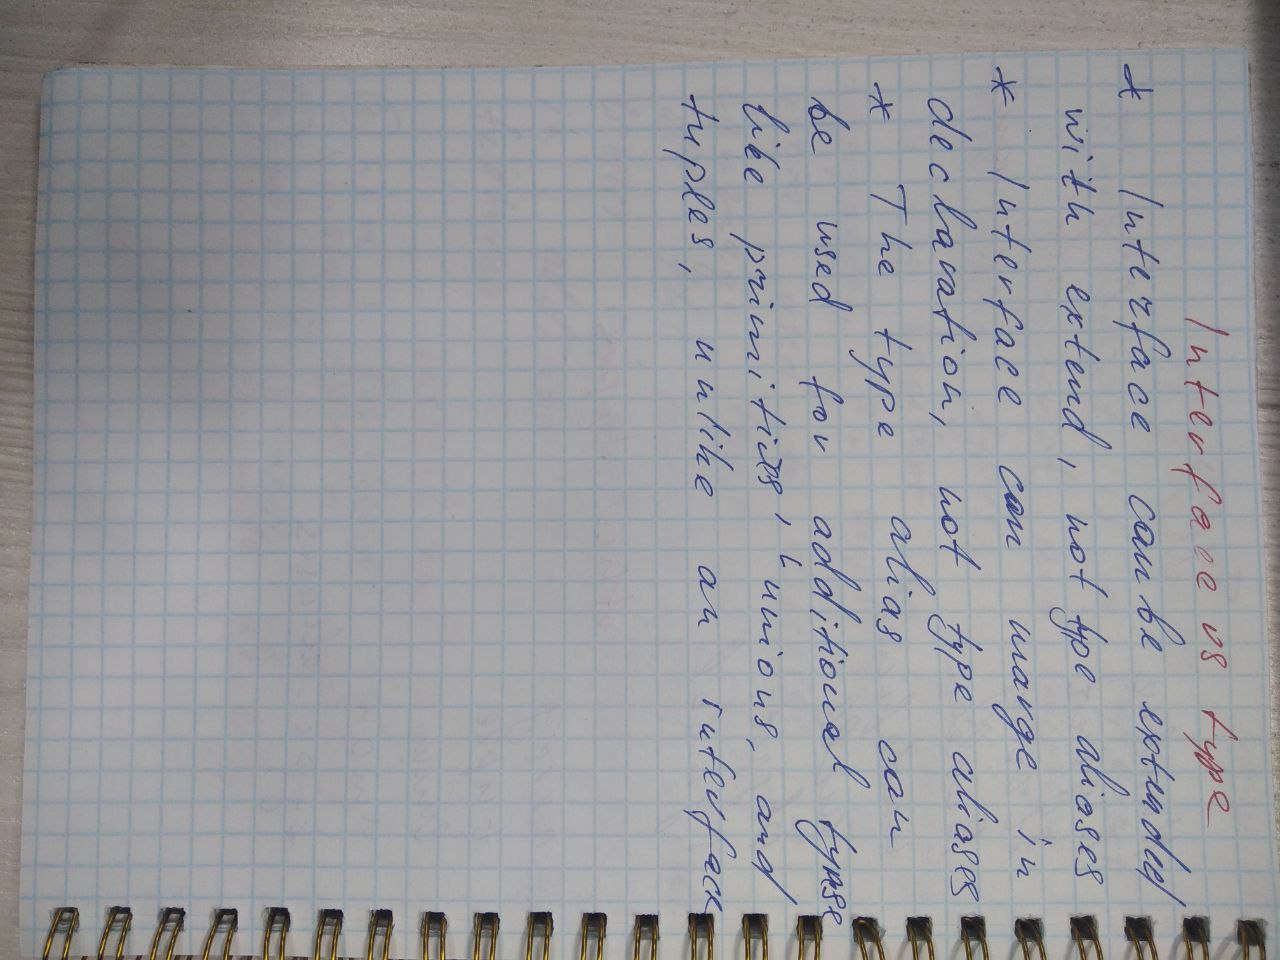 Interface vs type
* Interface can be extended
with extend, not type aliases
* Interface can marge in
declaration, not type aliases
* The type alias can
be used for additional typse
like primities, unions, and
tuples, unlike an interface